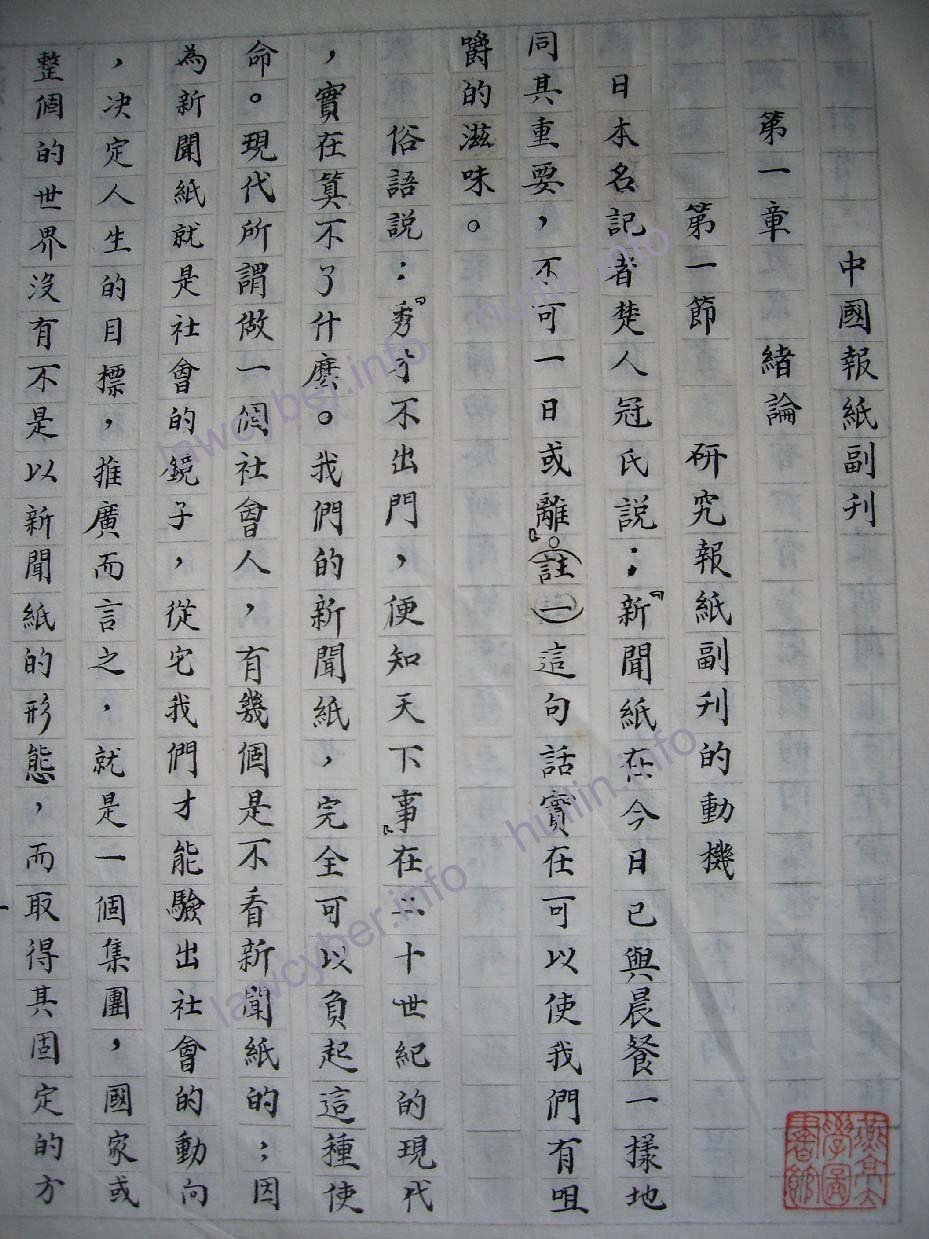 中國報紙副刊
第一章 緒論
第一節 研究報紙副刊的動機
日本名記者楚人冠氏説：『新聞紙在今日已與晨餐一樣地
同其重要，不可一日或離。』（註一）這句話實在可以使我們有咀
嚼的滋味。
俗語説：『秀才不出門，便知天下事』在二十世紀的現代
，實在算不了什麽。我們的新聞紙，完全可以負起這種使
命。現代所謂做一個社會人，有幾個是不看新聞紙的；因
為新聞紙就是社會的鏡子，從它我們才能驗出社會的動向
，决定人生的目標，推廣而言之，就是一個集團，國家或
整個的世界沒有不是以新聞紙的形態，而取得其固定的方
燕京大
學圖
書館
lawcyber.info - huilin.info
lawcyber.info - huilin.info